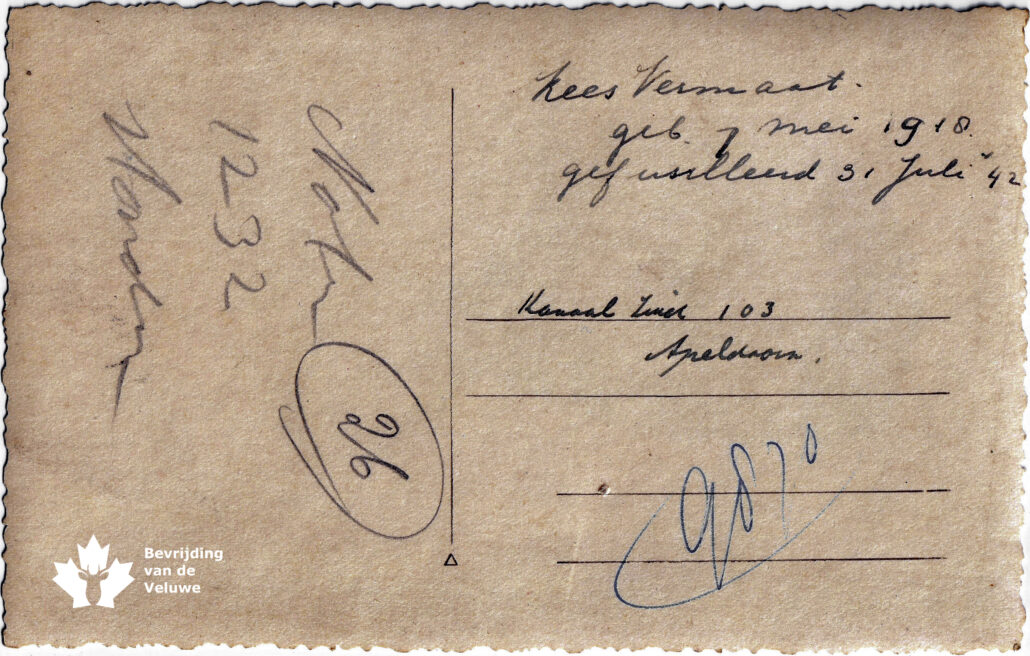 Kees Vermaat.
geb. 7 mei 1918.
gefusilleerd 31 Juli '42
Kanaal Zuid 103
Apeldoorn.
9870
1232
26
Bevrijding
van de
Veluwe